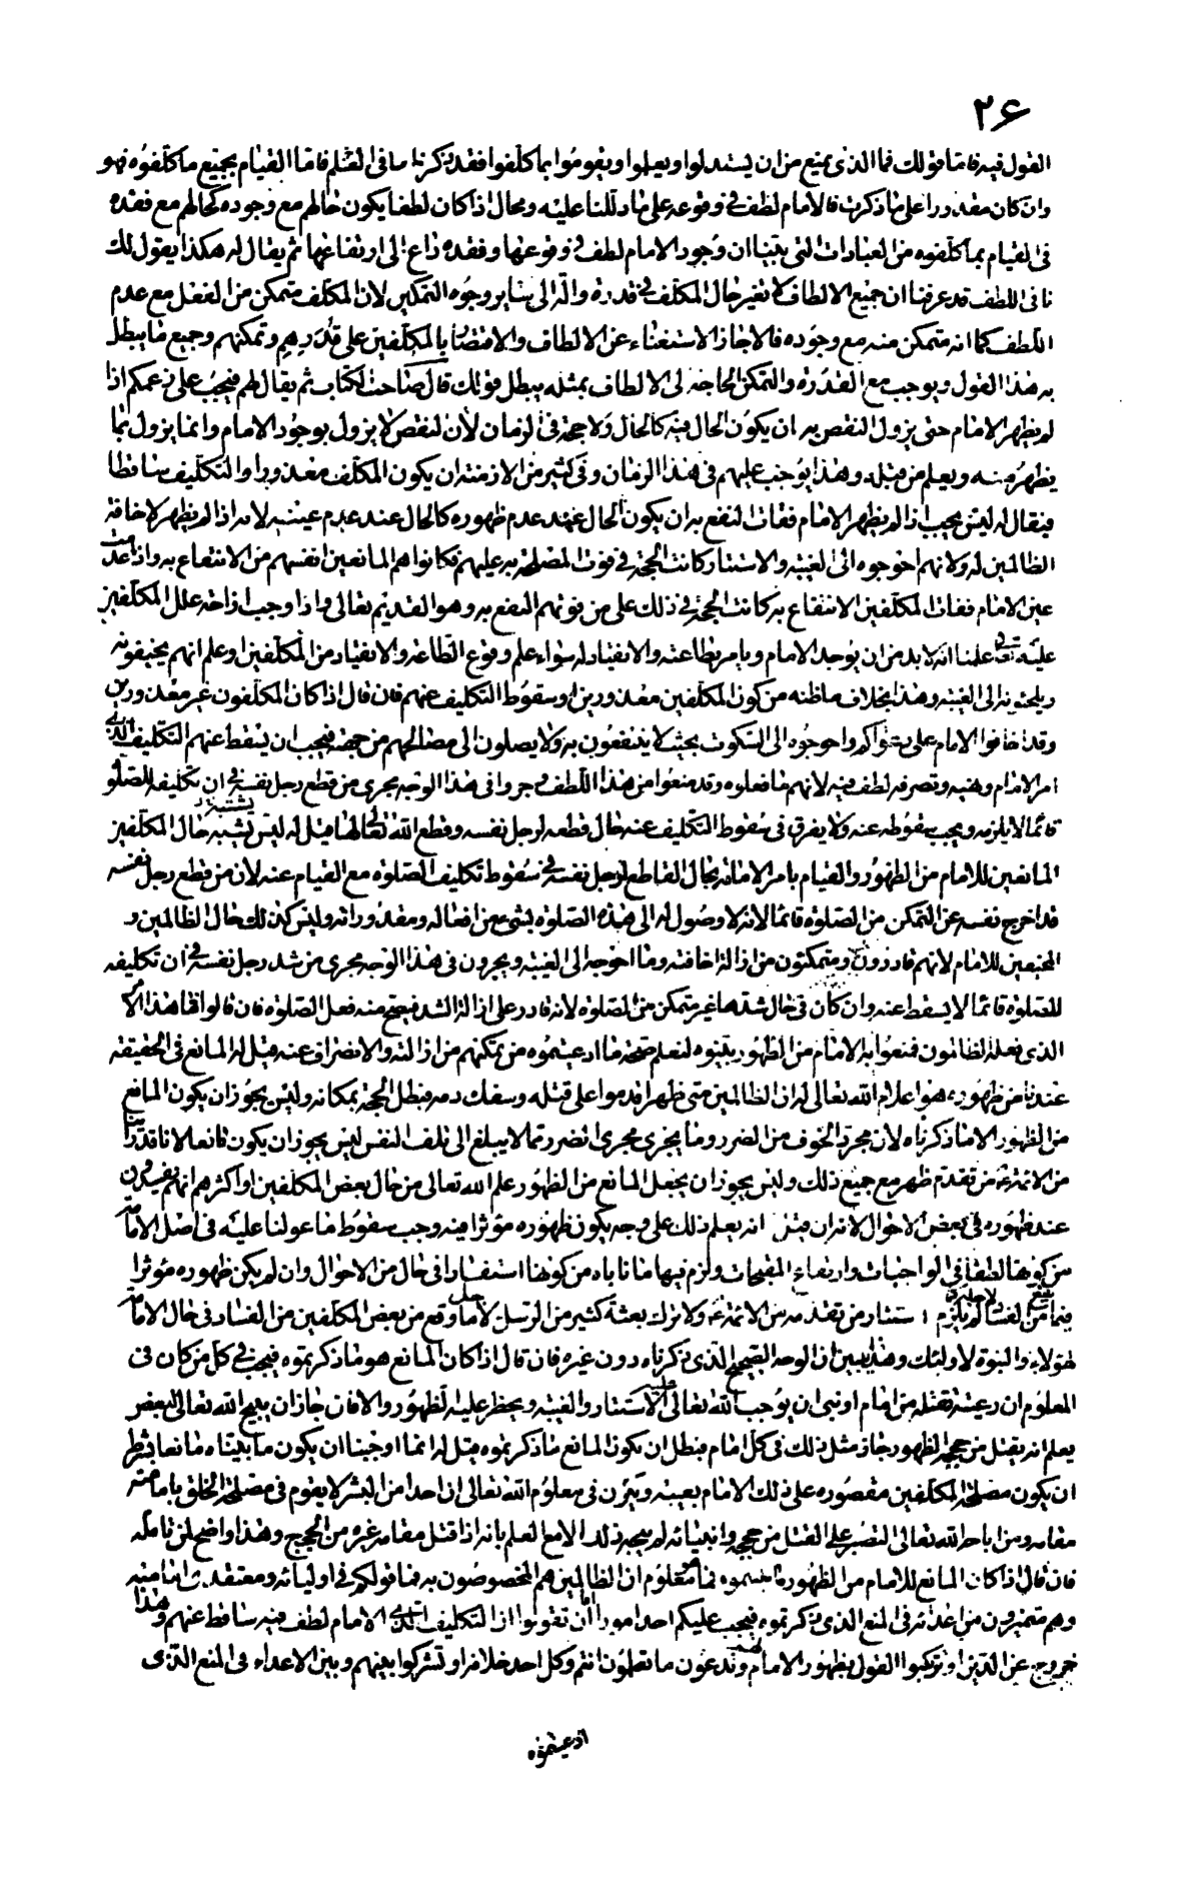 ٢۶
القول فيه فاما قولك فما الذى يمنع من ان يستدلوا ويعلموا ويقوموا بما كلفوا فقد ذكرنا ما فى العلم فاما القيام بجميع ما كلفوه فهو
وان كان مقدورا على ما ذكرت فالامام لطف فى وقوعه على ما دللنا عليه ومحال اذا كان لطفا يكون حالهم مع وجوده كحالهم مع فقده
فى القيام بما كلفوه من العبادات التى بيّنا ان وجود الامام لطف فى وقوعها وفقده داع الى ارتفاعها ثم يقال له هكذا يقول لك
نافى اللطف قد عرفنا ان جميع الالطاف لا تغير حال المكلف فى قدرته وآلته الى ساير وجوه التمكين لان المكلف متمكن من الفعل مع عدم
اللطف كما انه متمكن منه مع وجوده فالا جاز الاستغناء عن الالطاف والاقتصار بالمكلفين على قُدَرِهِم وتمكنهم وجميع ما يبطل
به هذا القول ويوجب مع القدرة والتمكن الحاجة الى الالطاف بمثله يبطل قولك قال صاحب الكتاب ثم يقال لهم فيجب على زعمكم اذا
لم يظهر الامام حتى يزول النقص به ان يكون الحال فيه كالحال ولا حجة فى الزمان لان النقص لا يزول بوجود الامام وانما يزول بما
يظهر منه ويعلم من قبله وهذا يوجب عليهم فى هذا الزمان وفى كثير من الازمنة ان يكون المكلف معذورا والتكليف ساقطا
فيقال له ليس يجب اذا لم يظهر الامام ففات النفع به ان يكون الحال عند عدم ظهوره كالحال عند عدم عينه لانه اذا لم يظهر لاخافة
الظالمين له ولانهم احوجوه الى الغيبة والاستتار كانت الحجة فى فوت المصلحة به عليهم فكانوا هم المانعين انفسهم من الانتفاع به واذا عدمت
عين الامام ففات المكلفين الانتفاع به كانت الحجة فى ذلك على من فوتهم النفع به وهو القديم تعالى واذا وجب ازاحة علل المكلفين
عليه تعالى علمنا انه لا بد من ان يوجد الامام ويامر بطاعته والانقياد له سواء علم وقوع الطاعة والانقياد من المكلفين او علم انهم يخيفونه
ويلجئونه الى الغيبة وهذا بخلاف ما ظنه من كون المكلفين معذورين او سقوط التكليف عنهم فان قال اذا كان المكلفون غير معذورين
وقد اخافوا الامام على دعواكم واحوجوه الى السكوت بحيث لا ينتفعون به ولا يصلون الى مصالحهم من جهته فيجب ان يسقط عنهم التكليف الذى
امر الامام ونهيه وتصرفه لطف فيه لانهم ما فعلوه وقد منعوا من هذا اللطف وجروا فى هذا الوجه مجرى من قطع رجل نفسه فى ان تكليفه الصلوة
قائما لا يلزمه ويجب سقوطه عنه ولا يفرق فى سقوط التكليف عنه حال قطعه لرجل نفسه وقطع الله تعالى لها قيل له ليس يشبه حال المكلفين
المانعين للامام من الظهور والقيام بامر الامامة بحال القاطع لرجل نفسه فى سقوط تكليف الصلوة مع القيام عنه لان من قطع رجل نفسه
قد اخرج نفسه عن التمكن من الصلوة قائما لانه لا وصول له الى هذه الصلوة بشئ من افعاله ومقدوراته وليس كذلك حال الظالمين و
المخيفين للامام لانهم قادرون ومتمكنون من ازالة اخافته وما احوجه الى الغيبة ويجرون فى هذا الوجه مجرى من شد رجل نفسه فى ان تكليفه
للصلوة قائما لا يسقط عنه وان كان فى حال شدها غير متمكن من الصلوة لانه قادر على ازالة الشد فيصح منه فعل الصلوة فان قالوا فما هذا الامر
الذى فعله الظالمون فمنعوا به الامام من الظهور بينوه لنعلم صحة ما ادعيتموه من تمكنهم من ازالته والانصراف عنه قيل له المانع فى الحقيقة
عندنا من ظهوره هو اعلام الله تعالى له ان الظالمين متى ظهر اقدموا على قتله وسفك دمه فبطل الحجة بمكانه وليس يجوز ان يكون المانع
من الظهور الا ما ذكرناه لان مجرد الخوف من الضرر وما يجرى مجرى الضرر مما لا يبلغ الى تلف النفس ليس يجوز ان يكون مانعا لانا قد رأينا
من الائمة ع من تقدم ظهر مع جميع ذلك وليس يجوز ان يجعل المانع من الظهور علم الله تعالى من حال بعض المكلفين او اكثرهم انهم يفسدون
عند ظهوره فى بعض الاحوال لانه ان قيل انه يعلم ذلك على وجه يكون ظهوره مؤثرا فيه وجب سقوط ما عولنا عليه فى اصل الامامة
من كونها لطفا فى الواجبات وارتفاع المقبحات ولزم فيها ما ناباه من كونها استفسادا فى حال من الاحوال وان لم يكن ظهوره مؤثرا
فيما يقع من الفساد لم يلزم لاجله استتار من تقدمه من الائمة ع ولا ترك بعثة كثير من الرسل لاجل ما وقع من بعض المكلفين من الفساد فى حال الامامة
لهؤلاء والنبوة لاولئك وهذا يبين ان الوجه الصحيح الذى ذكرناه دون غيره فان قال اذا كان المانع هو ما ذكرتموه فيجب فى كل من كان فى
المعلوم ان رعيته تقتله من امام او نبى ان يوجب الله تعالى عليه الاستتار والغيبة ويحظر عليه الظهور والا فان جاز ان يبيح الله تعالى لبعض
يعلم انه يقتل من حججه الظهور جاز مثل ذلك فى كل امام فبطل ان يكون المانع ما ذكرتموه قيل له انما اوجبنا ان يكون ما بيناه مانعا بشرط
ان يكون مصلحة المكلفين مقصوره على ذلك الامام بعينه ويكون فى معلوم الله تعالى ان احدا من البشر لا يقوم فى مصلحة الخلق بامامته
مقامه ومن اباحه الله تعالى التصبر على القتل من حججه وانبيائه لم يبحه ذلك الا مع العلم بانه اذا قتل مقامه غيره من الحجج وهذا واضح لمن تامله
فان قال اذا كان المانع للامام من الظهور ما بينتموه فمعلوم ان الظالمين هم المخصوصون به فما قولكم فى اوليائه ومعتقدى امامته
وهم متميزون من اعدائه فى المنع الذى ذكرتموه فيجب عليكم احد امور اما ان تقولوا ان التكليف الذى الامام لطف فيه ساقط عنهم وهذا
خروج عن الدين او تركبوا القول بظهور الامام لهم وتدعون ما تعلمون انتم وكل احد خلافه او تشركوا بينهم وبين الاعداء فى المنع الذى
ادعيتموه